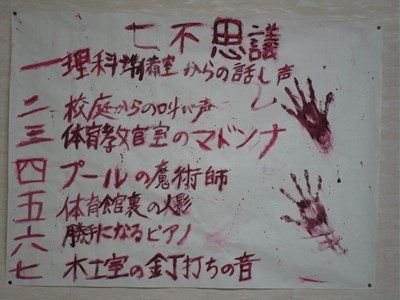 七不思議
一 理科準備室からの話し声
二 校庭からの叫び声
三 体育教官室のマドンナ
四 プールの魔術師
五 体育館裏の人影
六 勝手になるピアノ
七 木工室の釘打ちの音